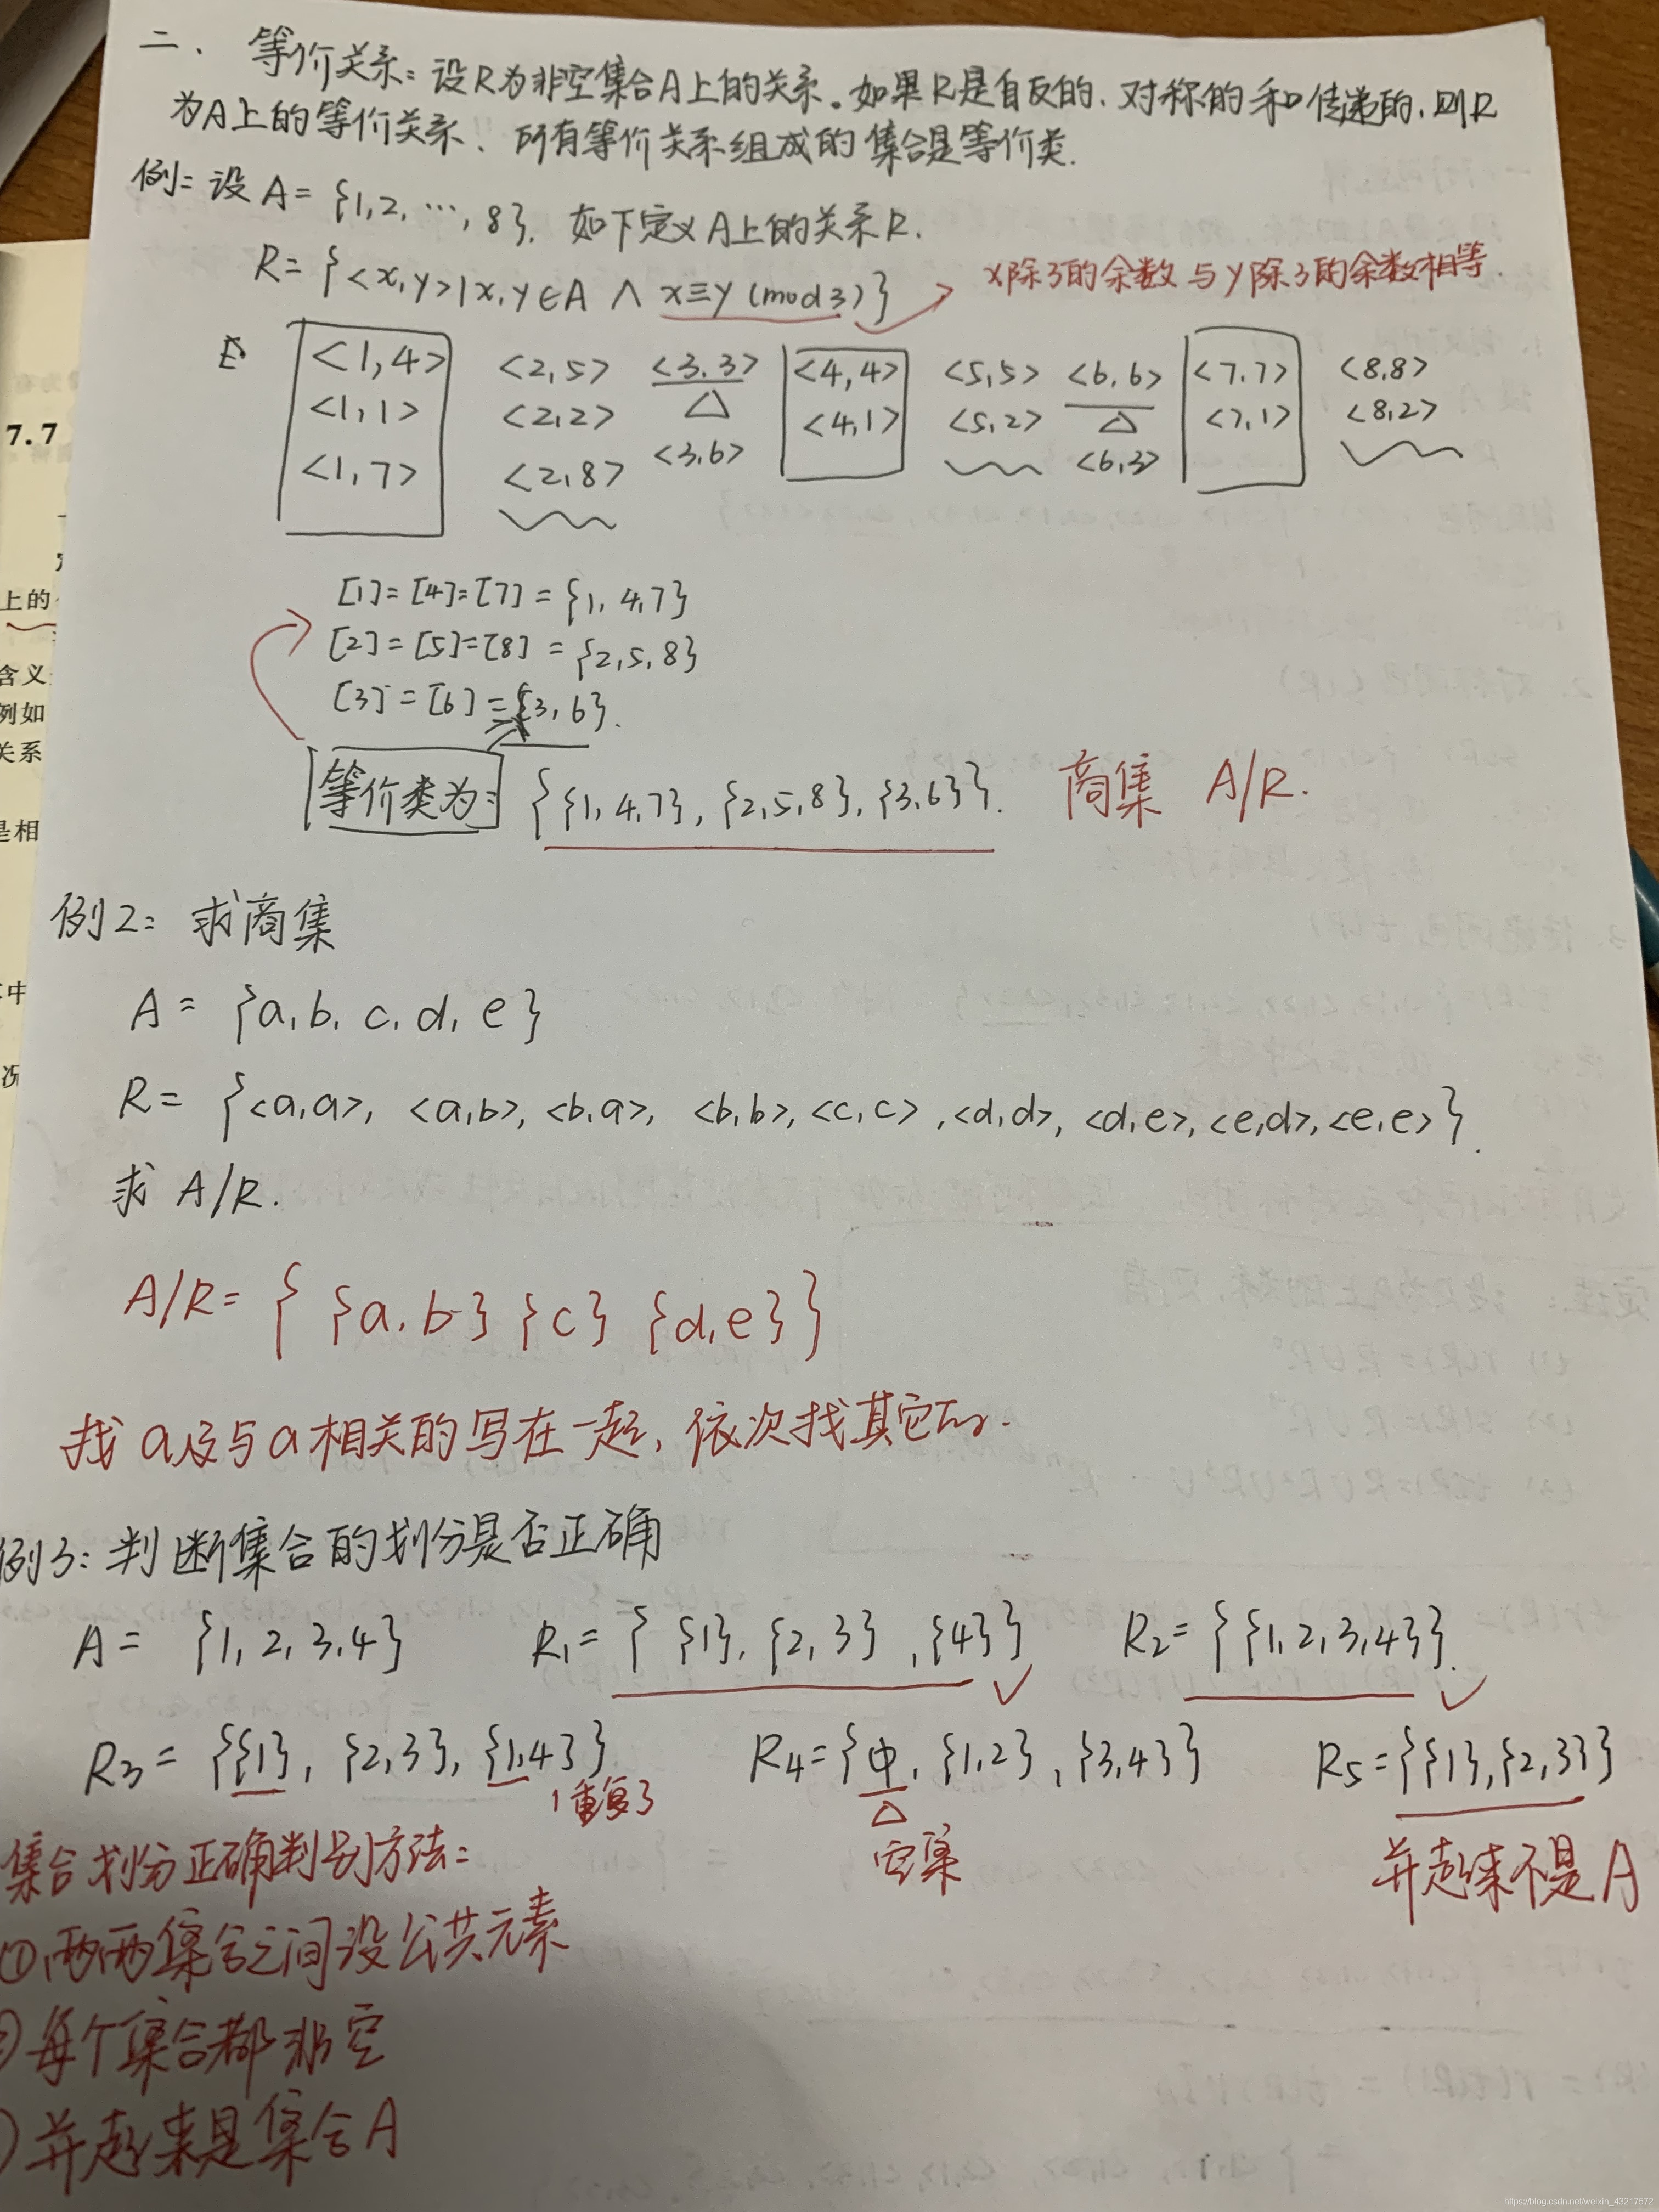 二、等价关系：设R为非空集合A上的关系。如果R是自反的、对称的和传递的，则R
为A上的等价关系、所有等价关系组成的集合是等价类.
例：设 A = {1,2,…,8}. 如下定义A上的关系R.
R = {<x,y>|x,y∈A ∧ x≡y (mod 3)}
x除3的余数与y除3的余数相等.
<1,4> <2,5> <3,3> <4,4> <5,5> <6,6> <7,7> <8,8>
<1,1> <2,2> △ <4,1> <5,2> △ <7,1> <8,2>
<1,7> <2,8> <3,6> <6,3>
[1]=[4]=[7] = {1,4,7}
[2]=[5]=[8] = {2,5,8}
[3]=[6]={3,6}.
等价类为: {{1,4,7},{2,5,8},{3,6}}. 商集 A/R.
例2: 求商集
A = {a,b,c,d,e}
R = {<a,a>, <a,b>, <b,a>, <b,b>, <c,c>, <d,d>, <d,e>, <e,d>, <e,e>}.
求 A/R.
A/R = { {a,b} {c} {d,e} }
找a及与a相关的写在一起, 依次找其它的.
例3: 判断集合的划分是否正确
A = {1,2,3,4} R₁= { {1}, {2,3}, {4}} ✓ R₂= {{1,2,3,4}}. ✓
R₃ = {{1}, {2,3}, {1,4}} R₄={φ, {1,2}, {3,4}} R₅={{1},{2,3}}
1重复了 △
空集 并起来不是A
集合划分正确判别方法:
①两两集合之间没公共元素
每个集合都非空
并起来是集合A
7.7
上的
含义
例如
关系
是相
中
况
https://blog.csdn.net/weixin_43217572